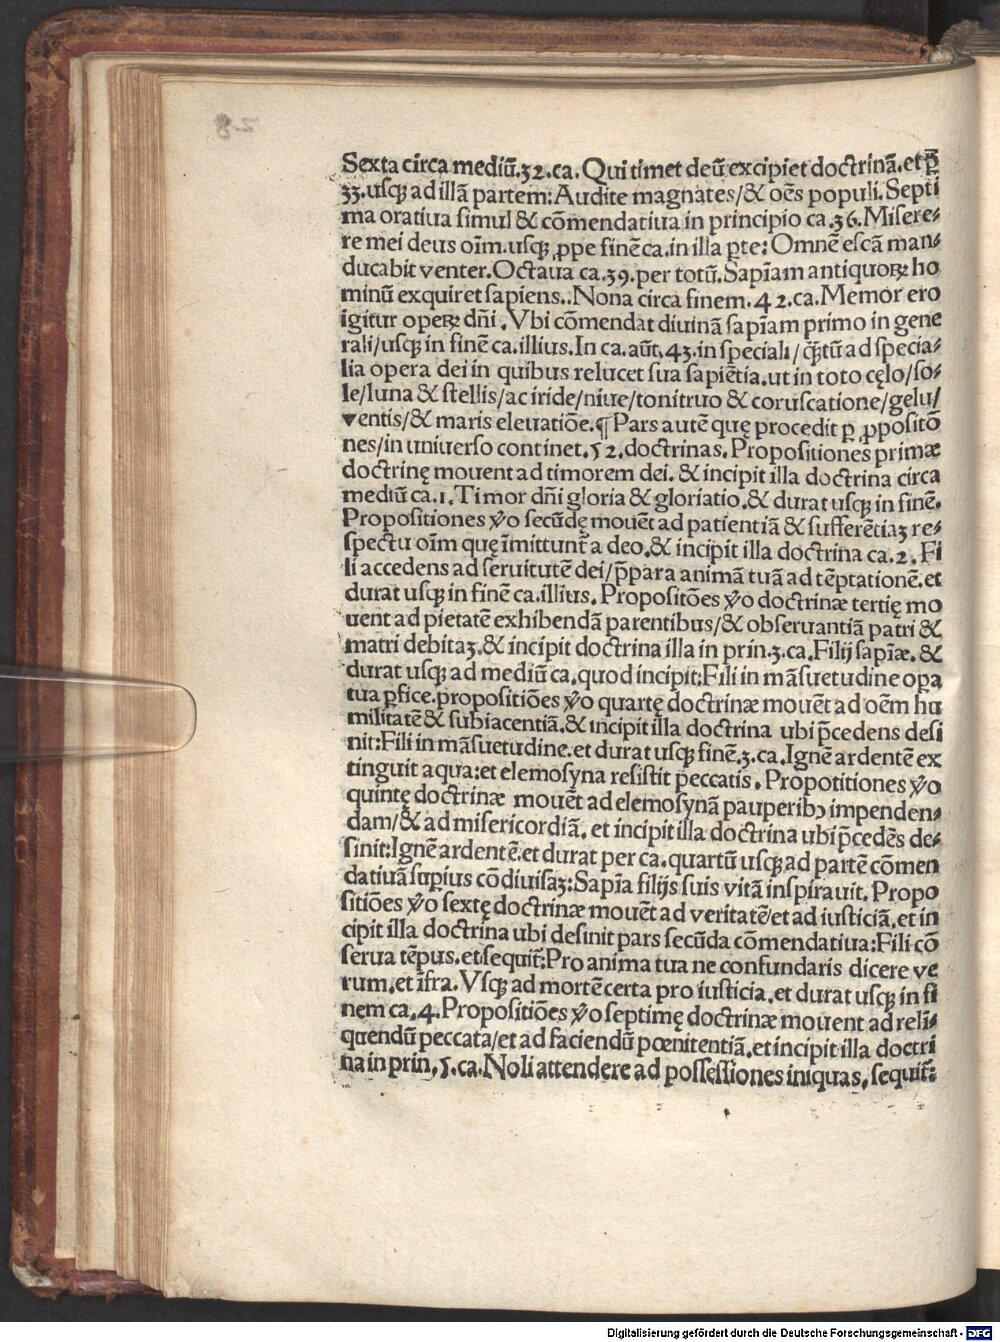 Sexta circa mediū.32.ca. Qui timet deū excipiet doctrinā.et p̄
33.usq; ad illā partem: Audite magnates/& oēs populi. Septi
ma oratiua simul & cōmendatiua in principio ca.36. Misere⸗
re mei deus oīm.usq; ꝓpe finē ca.in illa ꝑte: Omnē escā man⸗
ducabit venter. Octaua ca.39.per totū. Sapīam antiquoꝝ ho
minū exquiret sapiens.. Nona circa finem.42.ca. Memor ero
igitur opeꝝ dn̄i. Vbi cōmendat diuinā sapīam primo in gene
rali/usq; in finē ca.illius. In ca.aūt.43.in speciali/q̄ꝫtū ad specia⸗
lia opera dei in quibus relucet sua sapiētia.ut in toto cęlo/so⸗
le/luna & stellis/ac iride/niue/tonitruo & coruscatione/gelu/
ventis/& maris eleuatiōe.¶ Pars autē quę procedit ꝑ ꝓpositō
nes/in uniuerso continet.52.doctrinas. Propositiones primæ
doctrinę mouent ad timorem dei. & incipit illa doctrina circa
mediū ca.1. Timor dn̄i gloria & gloriatio.& durat usq; in finē.
Propositiones ꝟo secūdę mouēt ad patientiā & sufferētiaꝫ re⸗
spectu oīm quę īmittunt̄ a deo.& incipit illa doctrina ca.2. Fi
li accedens ad seruitutē dei/p̄para animā tuā ad tēptationē.et
durat usq; in finē ca.illius. Propositōes ꝟo doctrinæ tertię mo
uent ad pietatē exhibendā parentibus/& obseruantiā patri &
matri debitaꝫ.& incipit doctrina illa in prin.3.ca. Filij sapīæ. &
durat usq; ad mediū ca.quod incipit: Fili in māsuetudine oꝑa
tua ꝑfice.propositiōes ꝟo quartę doctrinæ mouēt ad oēm hu
militatē & subiacentiā.& incipit illa doctrina ubi p̄cedens desi
nit: Fili in māsuetudine.et durat usq; finē.3.ca. Ignē ardentē ex
tinguit aqua:et elemosyna resistit peccatis. Propotitiones ꝟo
quintę doctrinæ mouēt ad elemosynā pauperibꝰ impenden⸗
dam/& ad misericordiā. et incipit illa doctrina ubi p̄cedēs de⸗
sinit: Ignē ardentē.et durat per ca.quartū usq; ad partē cōmen
datiuā suꝑius cōdiuisaꝫ: Sapīa filijs suis vitā inspirauit. Propo
sitiōes ꝟo sextę doctrinæ mouēt ad veritatē/et ad iusticiā.et in
cipit illa doctrina ubi desinit pars secūda cōmendatiua: Fili cō
serua tēpus.et sequit̄: Pro anima tua ne confundaris dicere ve
rum.et īfra. Vsq; ad mortē certa pro iusticia.et durat usq; in fi
nem ca.4. Propositiōes ꝟo septimę doctrinæ mouent ad relī⸗
quendū peccata/et ad faciendū pœnitentiā.et incipit illa doctri
na in prin.5.ca. Noli attendere ad possessiones iniquas.sequit̄:
Digitalisierung gefördert durch die Deutsche Forschungsgemeinschaft - DFG